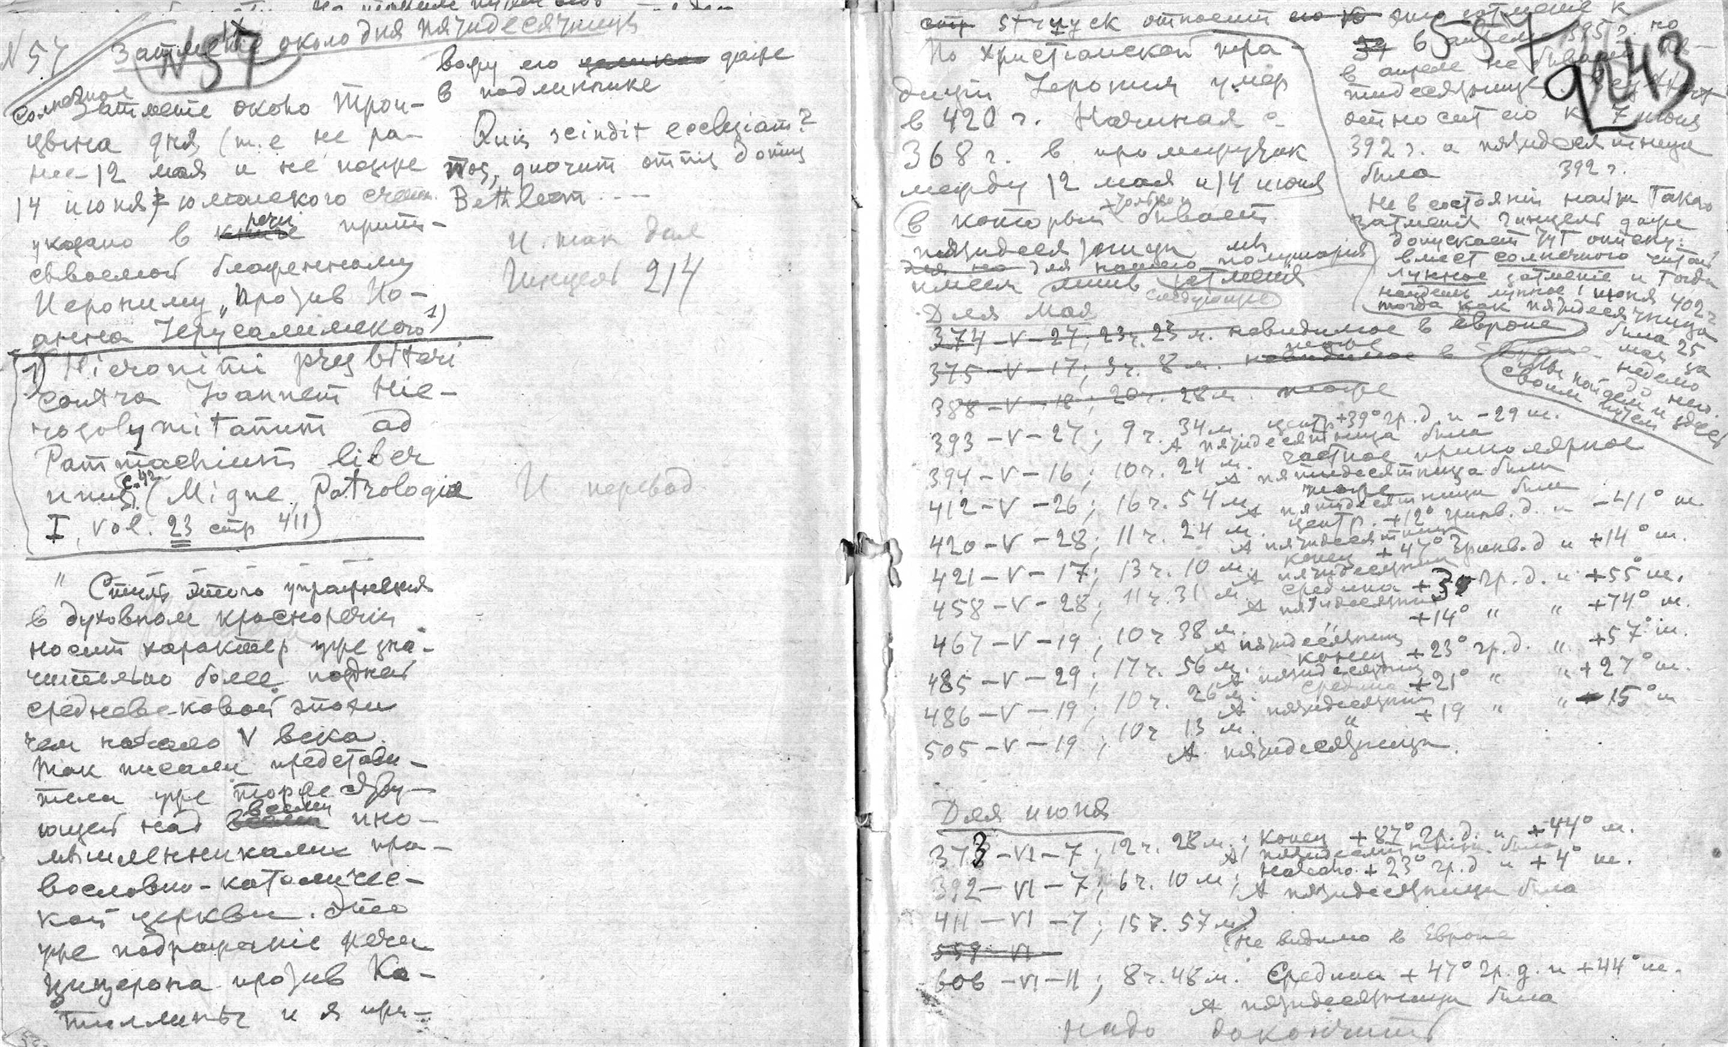 N 57 Затмение около дня пятидесятницы
N 57
Солнечное
затмение около Трои-
цына дня (т.е не ра-
нее 12 мая и не позже
14 июня) юлианского счета
указано в речи припи-
сываемой блаженному
Иерониму „Против Ио-
анна Иерусалимского" 1)
1) Hieronimi presbiteri
contra Joannem Hie-
rosolymitanum ad
Pammachium liber
unus. c. 42 (Migne, Patrologia
I, vol. 23 стр 411)
" Стиль этого упражнения
в духовном красноречии
носит характер уже зна-
чительно более поздней
средневековой эпохи
чем начало V века.
Так писали представи-
тели уже торжеству-
ющей над всеми ино-
мышленниками пра-
вославно-католичес-
кой церкви. Это
уже подражание речи
Цицерона против Ка-
тиллины и я при-
вожу его даже
в подлиннике
Quis scindit ecclesiam?
nos, quorum omnis domus
Bethleem ....
И так дал
Гинцель 214
И перевод
557
243
По Христианской тра-
диции Иероним умер
в 420 г. Начиная с
368 г. в промежуток
между 12 мая и 14 июня
в который только и бывает
пятидесятница мы
имеем лишь следующие затмения
в апреле не бывает пя-
тидесятницы,
относит его к 7 июня
392 г. а пятидесятница
была 392 г.
Не в состоянии найти такого
затмения Гинцель даже
допускает тут описку:
вместо солнечного читай
лунное затмение и тогда
находит лунное 1 июня 402 г
тогда как пятидесятница
была 25
мая за
неделю
до него.
Мы пойдем и здесь
своим путем
Для мая
374-V-27; 23ч. 23м. невидимое в Европе
375-V-17; 9ч. 8м. тоже
388-V-18; 20ч. 28м. тоже
393-V-27; 9ч. 34м. центр +39° гр.д. и -29 ш.
А пятидесятница была
394-V-16; 10ч. 24 м. частное приполярное
А пятидесятница была
412-V-26; 16ч. 54м. тоже
А пятидесятница была
420-V-28; 11ч. 24 м. центр. +12° гринв. д. и -41° ш.
А пятидесятница
421-V-17; 13ч. 10 м. конец +47° Гринв.д и +14° ш.
А пятидесятница
458-V-28; 11ч. 31 м. средина +3 гр.д. и +55 ш.
А пятидесятница
467-V-19; 10ч. 38 м. " +14° " " +74° ш.
А пятидесятниц
485-V-29; 17ч. 56 м. конец +23° гр.д. " +57° ш.
А пятидесятниц
486-V-19; 10ч. 26 м. средина +21° " " +27° ш.
А пятидесятниц
505-V-19; 10ч 13 м. " +19 " " 15° ш
А пятидесятница.
Для июня
373-VI-7; 12ч. 28м.; конец +87° гр.д. и +44° ш.
А пятидесятница была
392-VI-7; 6ч. 10 м; начало +23° гр.д и +4° ш.
А пятидесятница была
411-VI-7; 15ч. 57м.
Не видимо в Европе
559-VI
606-VI-11; 8ч. 48м. Средина +47° гр.д. и +44° ш.
А пятидесятница была
Надо докончить